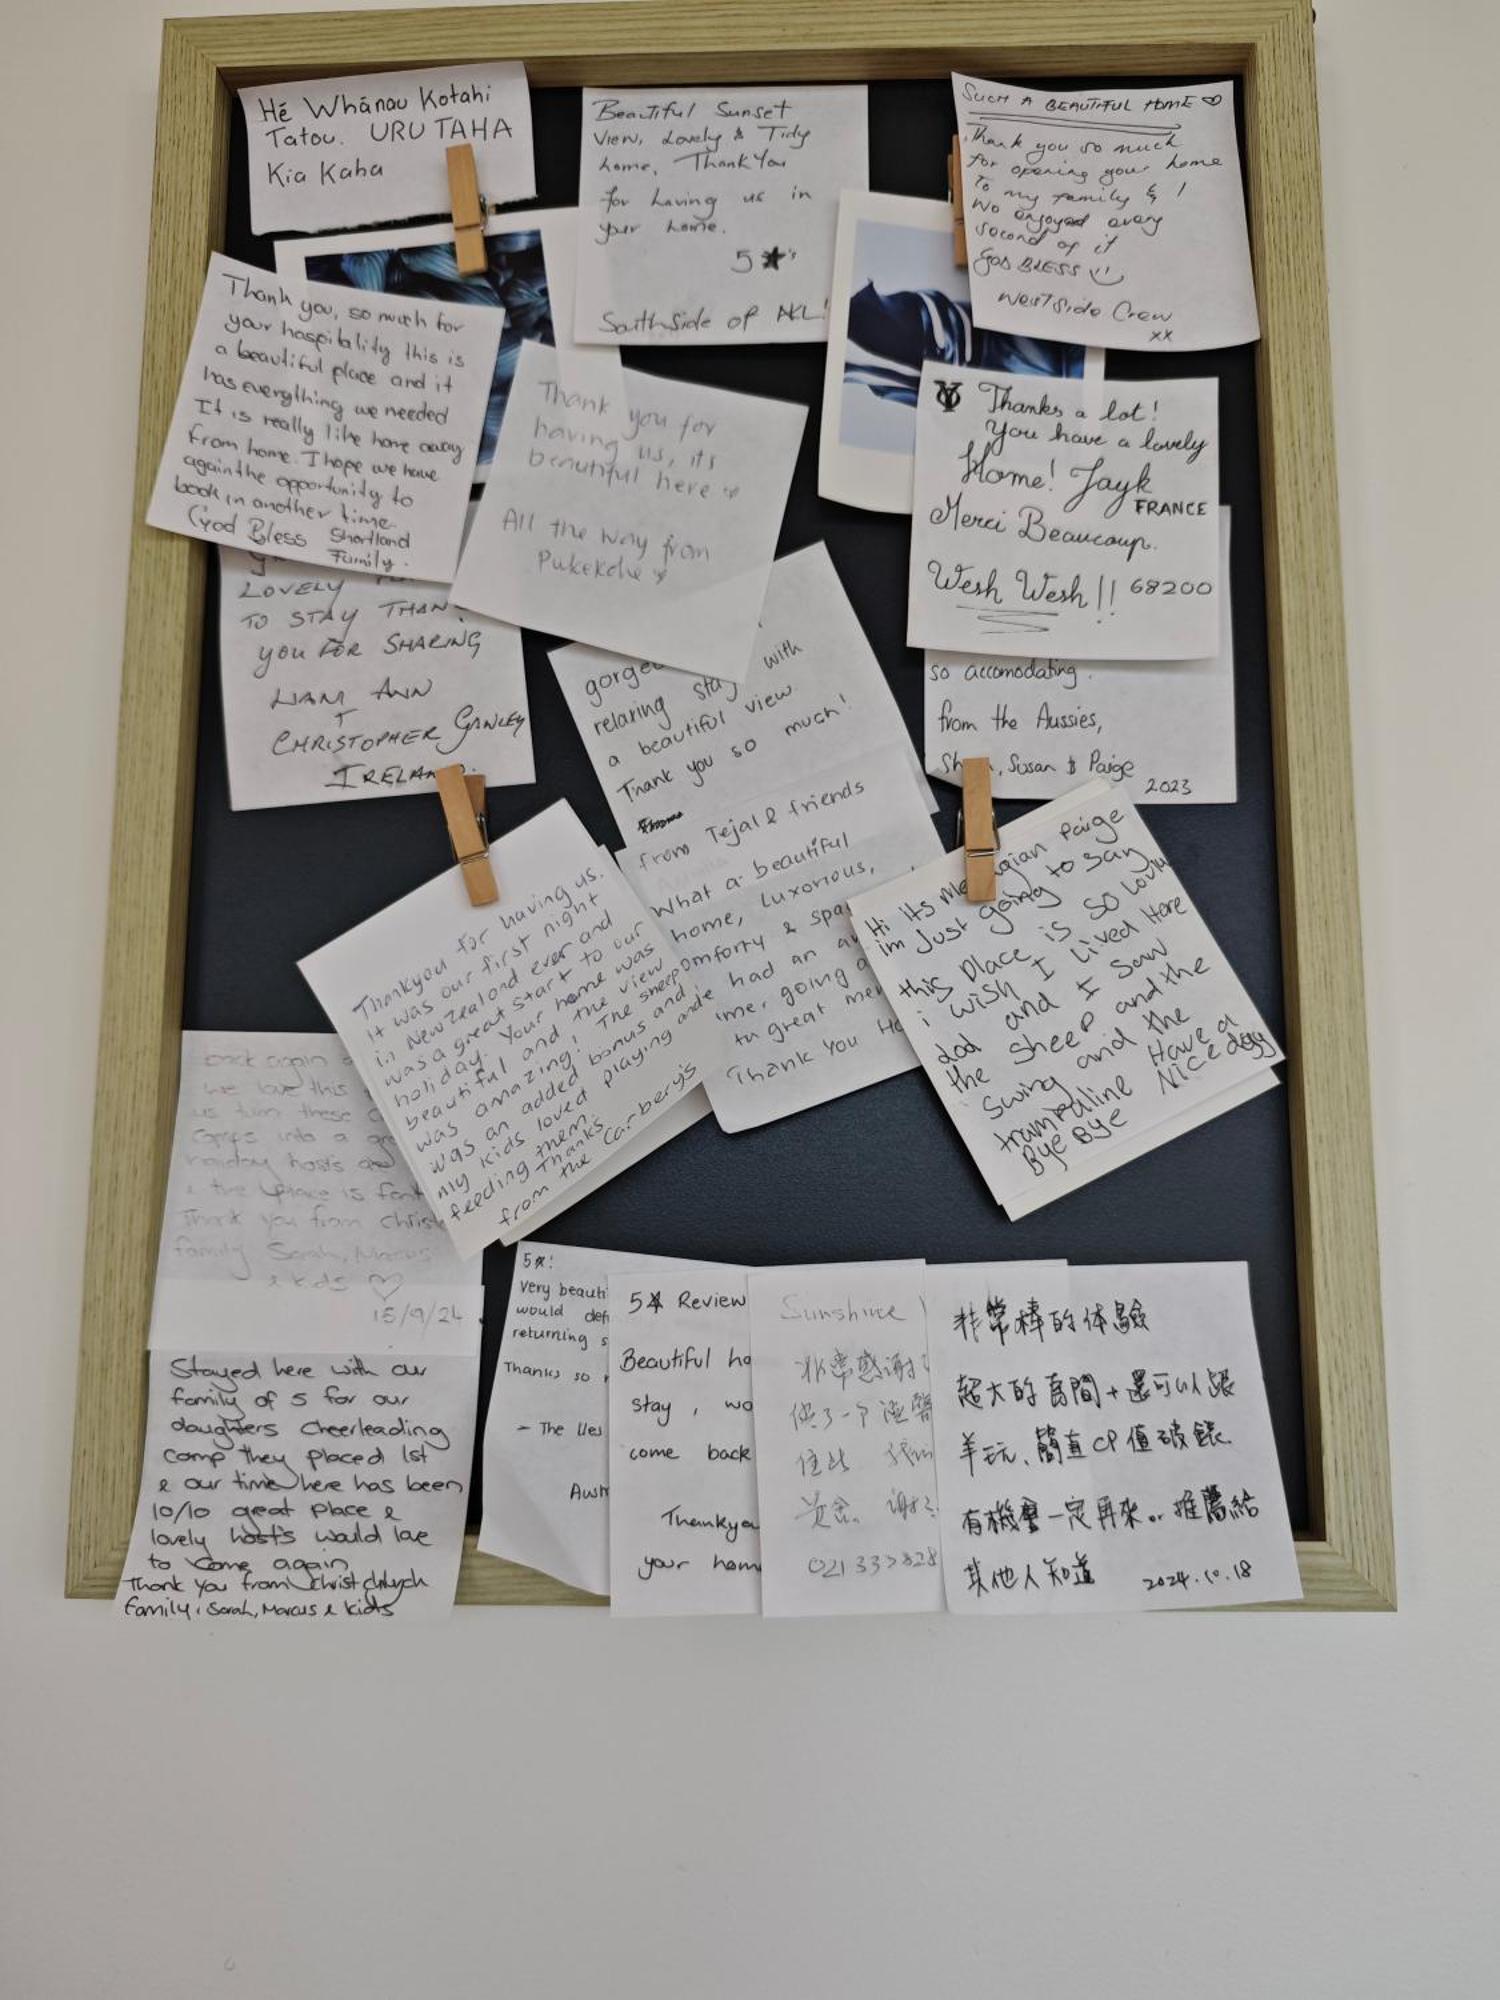 Hē Whānau Kotahi
Tatou. URU TAHA
Kia Kaha
Beautiful Sunset
View, Lovely & Tidy
home, Thank You
for having us in
your home.
5 ★'s
South Side of AKL!
SUCH A BEAUTIFUL HOME ♡
Thank you so much
for opening your home
To my family & I
We enjoyed every
second of it
GOD BLESS
West Side Crew
xx
Thank you, so much for
your hospitality this is
a beautiful place and it
has everything we needed
It is really like home away
from home. I hope we have
again the opportunity to
book in another time.
God Bless Shortland
Family.
Thank you for
having us, its
beautiful here ♡
All the way from
Pukekohe ♡
Thanks a lot!
You have a lovely
Home! Jayk
FRANCE
Merci Beaucoup.
Wesh Wesh!! 68200
LOVELY
TO STAY THAN
YOU FOR SHARING
LIAM ANN
+
CHRISTOPHER GAWLEY
IRELAND.
relaxing stay with
a beautiful view.
Thank you so much!
from Tejal & friends
so accomodating.
from the Aussies,
, Susan & Paige
2023
Thankyou for having us.
It was our first night
in New Zealand ever and
was a great start to our
holiday. Your home was
beautiful and the view
was amazing! The sheep
was an added bonus and
my kids loved playing and
feeding them.
Thanks
from the Carbery's
What a beautiful
home, luxorious,
omforty & spa
had an
me, going
great me
Thank You
Hi its Paige
im Just going to say
this place is so lovin
i wish I lived Here
dad and I saw
the sheep and the
swing and the
trampaline Have a
Bye Bye Nice dayy
back again
we love this
us turn these
comps into a
holiday hosts
& the place is fant
Thank you from Christ
family Sarah, Marcus
& kids ♡
15/9/24
Stayed here with our
family of 5 for our
daughters Cheerleading
comp They placed 1st
& our time here has been
10/10 great place &
lovely hosts would love
to come again
Thank You from Christchurch
family, Sarah, Marcus & kids
5★!
Very beauti
would def
returning s
Thanks so
- The
Aust
5★ Review
Beautiful ho
stay, wo
come back
Thankyo
your hom
Sunshine
非常感谢
供了一个
住
谢
非常棒的体驗
超大的房間+還可以跟
羊玩、簡直CP值破錶
有機會一定再來。推薦給
其他人知道
2024.10.18